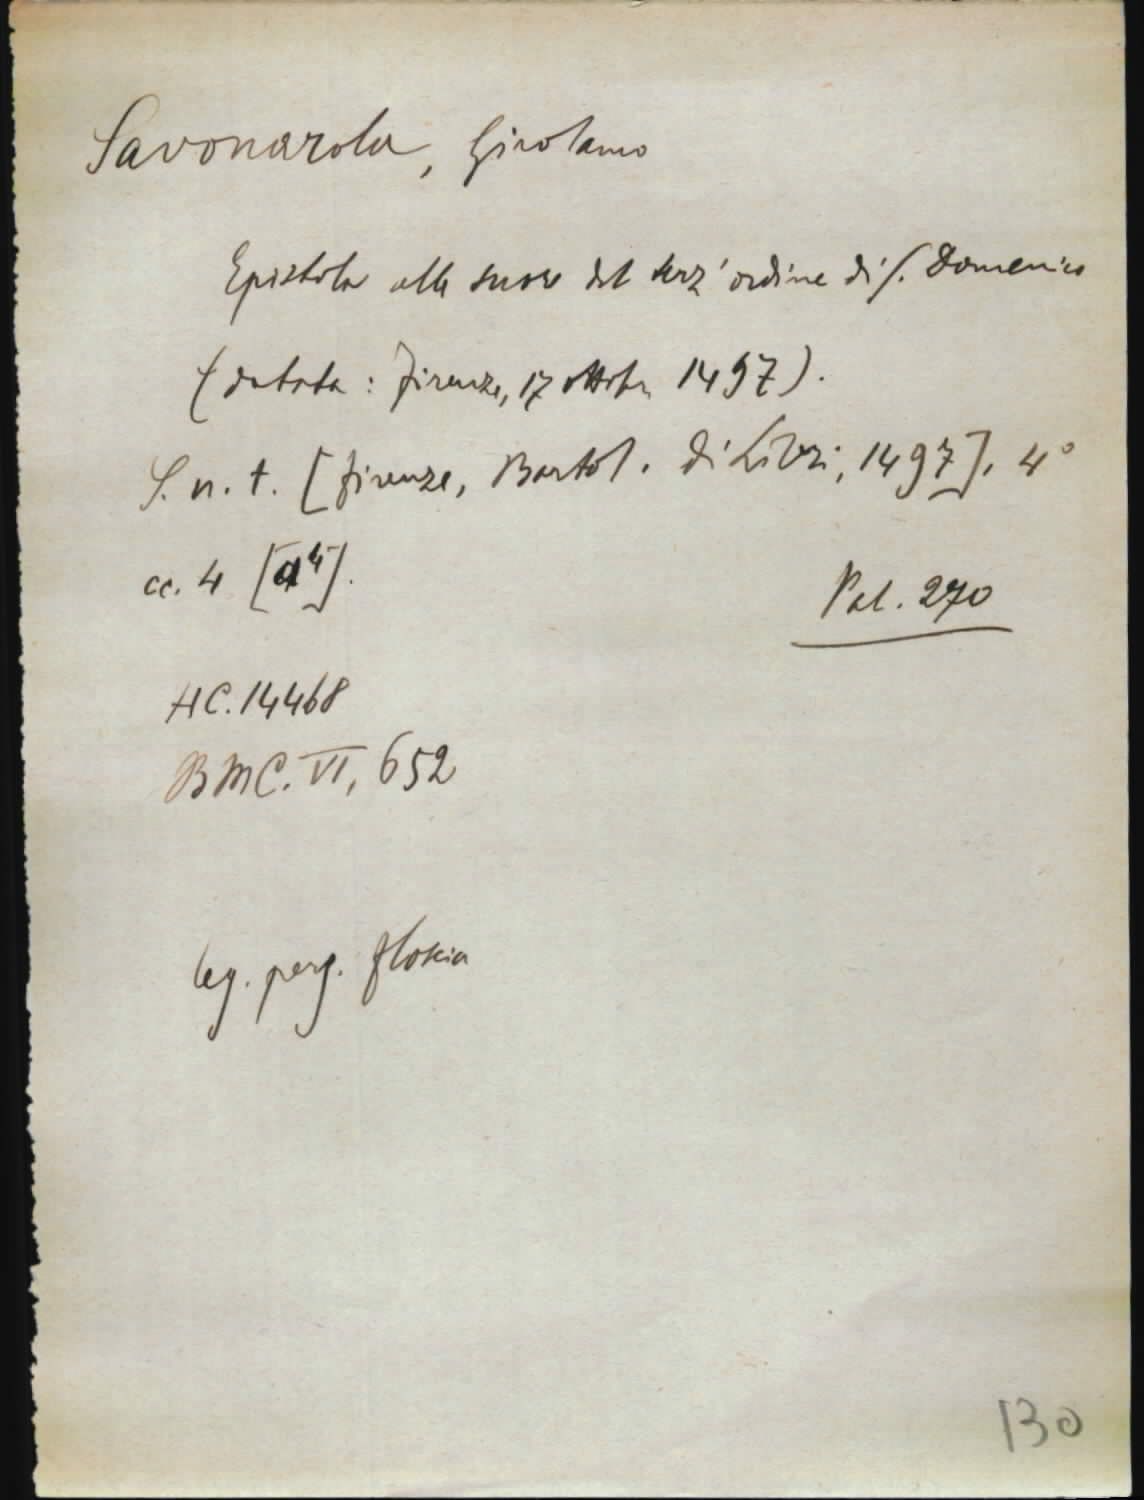 Savonarola, Girolamo
Epistola alle suore del terz'ordine di S. Domenico
(datata: Firenze, 17 ottobre 1497).
S. n. t. [Firenze, Bartol. di Libri, 1497]. 4°
cc. 4 [a⁴].
Pal. 270
HC. 14468
BMC. VI, 652
leg. perg. floscia
130